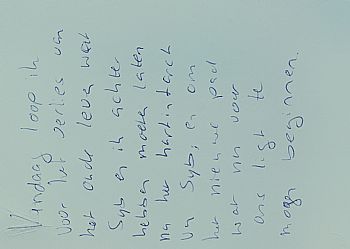 Vandaag loop ik
voor het verlies van
het oude leven wat
Syb en ik achter
hebben moeten laten
na het hartinfarct
van Syb, en om
het nieuwe pad
wat nu voor
ons ligt te
mogen beginnen.